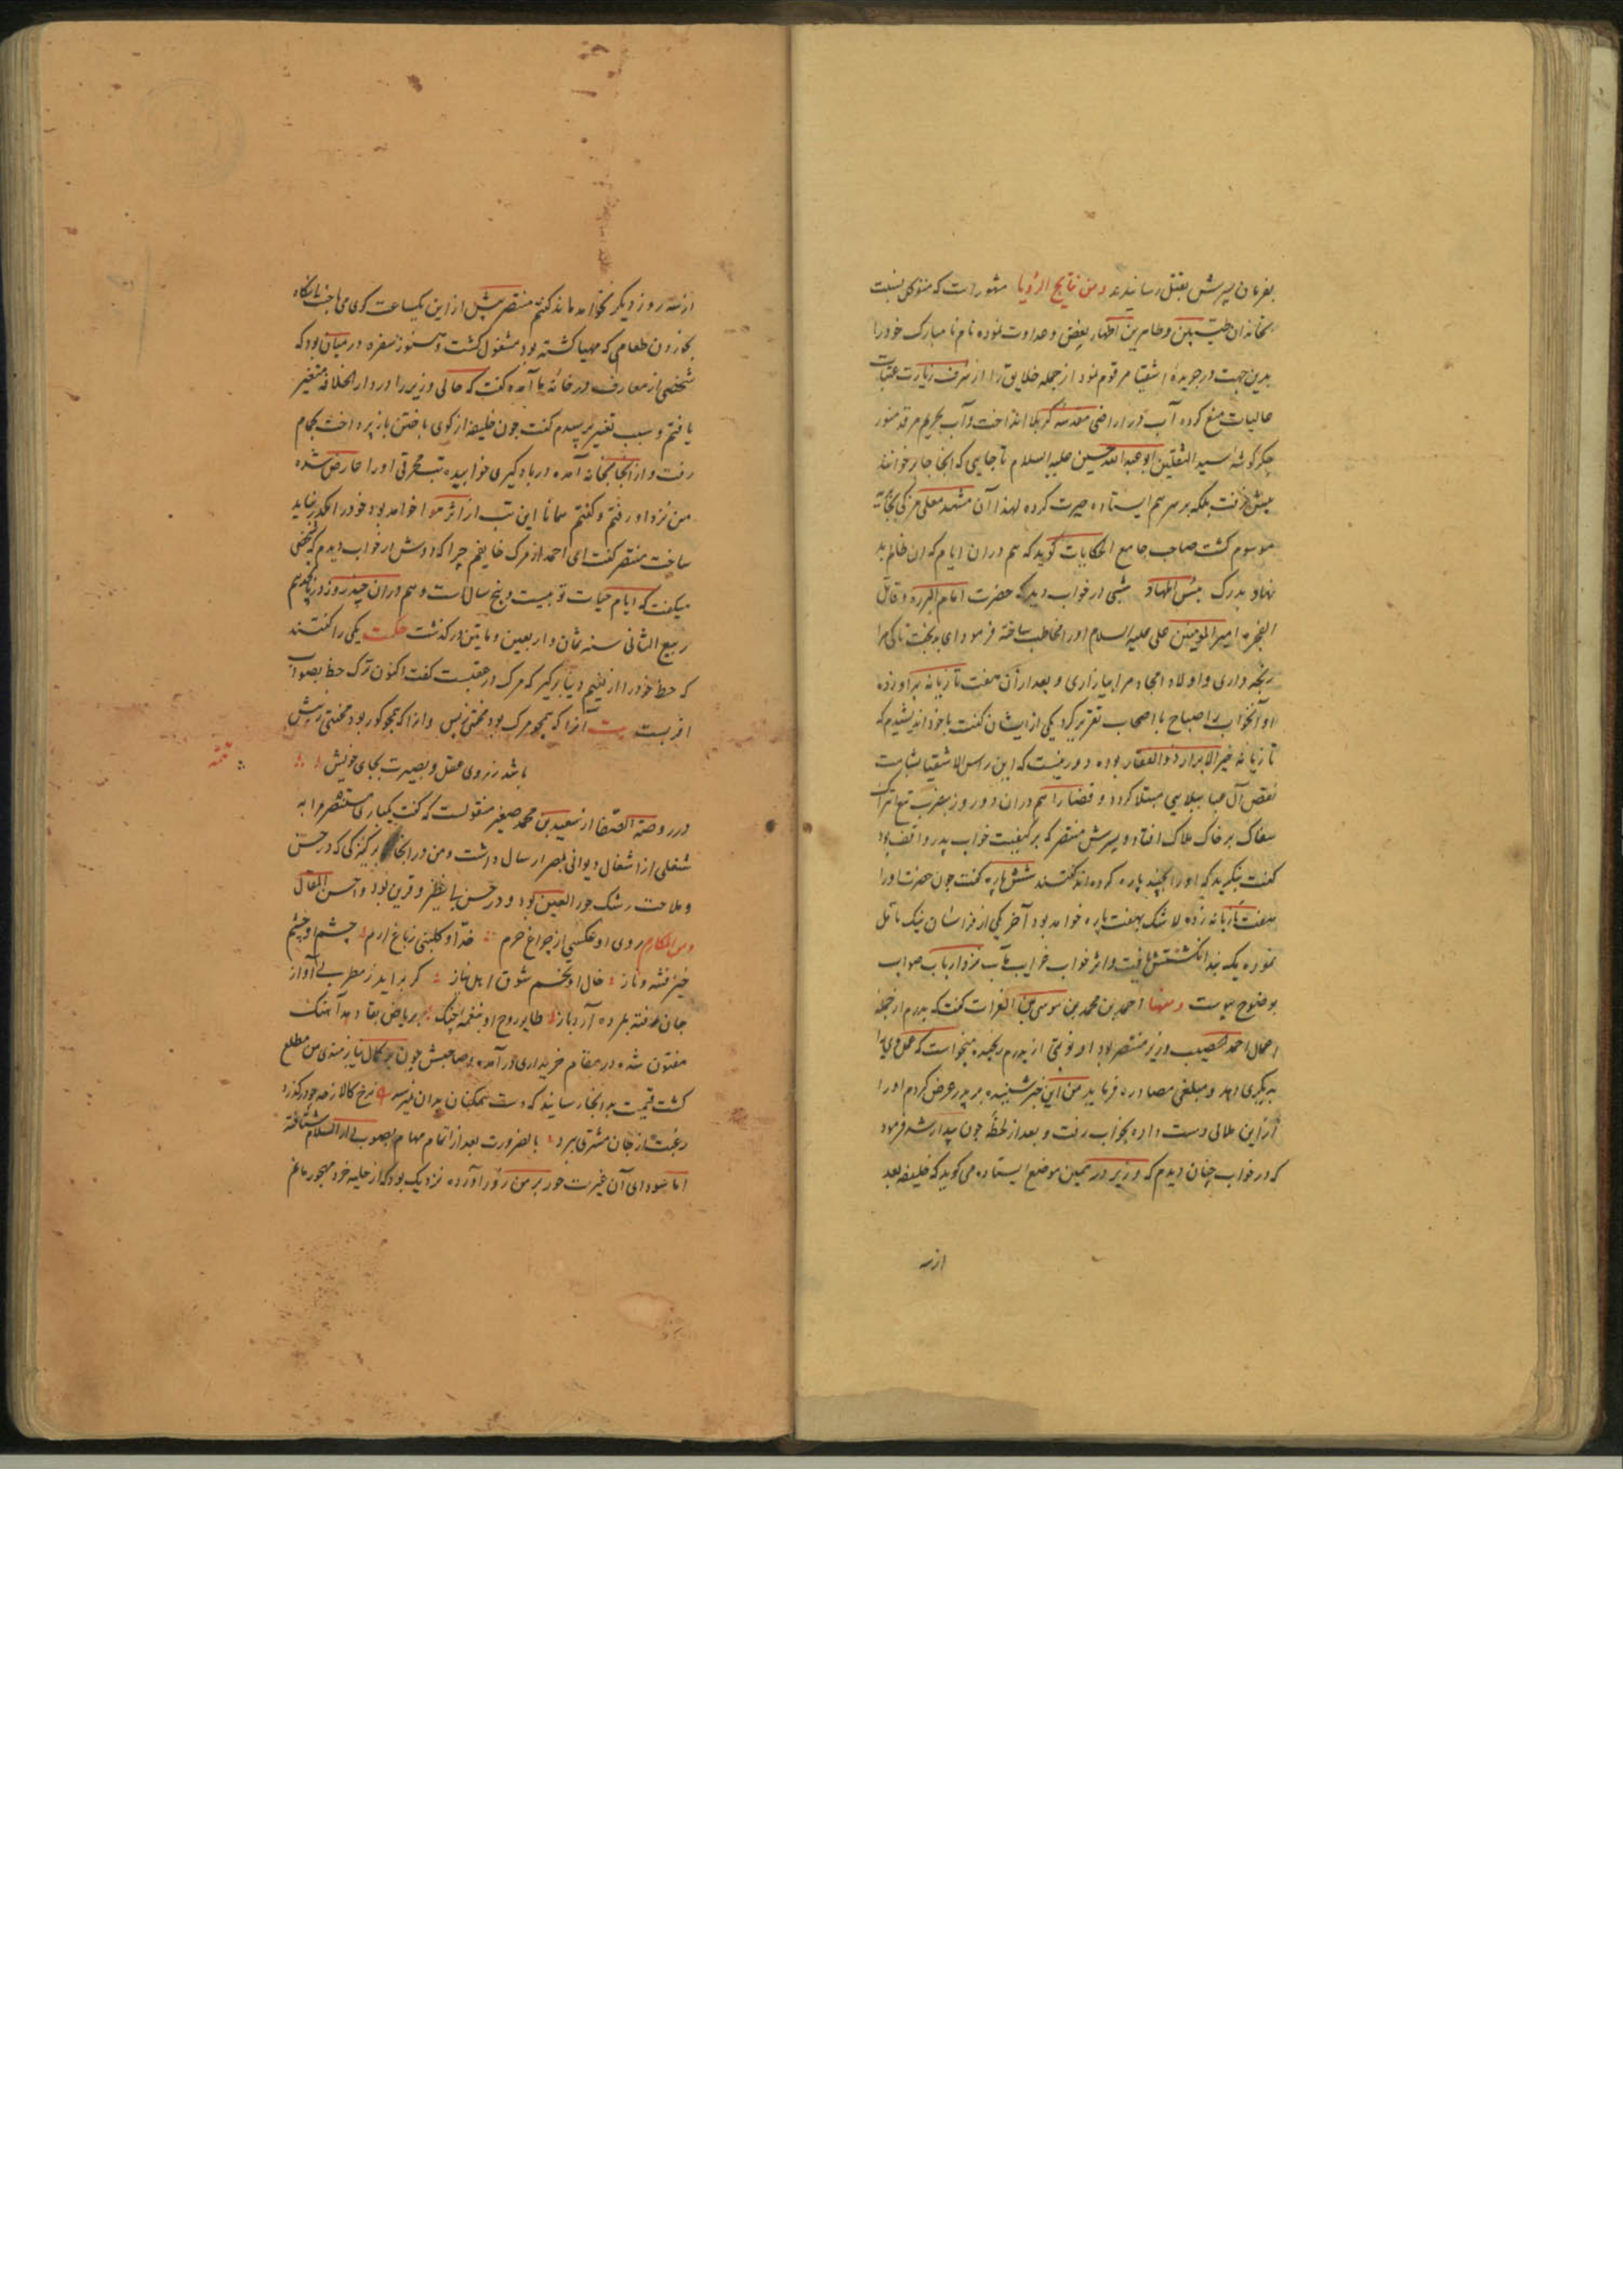 بفرمان پسرش بقتل رسانیدند ومن نتایج الرؤیا مشهورست که متوکل نسبت
بخاندان طیبین وطاهرین اظهار بغض وعداوت نموده نام نا مبارک خودرا
بدین جهت درجریدهٔ اشقیا مرقوم نمود ازجمله خلایق را از شرف زیارت عتبات
عالیات منع کرده آب در اراضی مقدسه کربلا انداخت وآب بحریم مرقد منور
جگرکوشهٔ سید الثقلین ابوعبدالله حسین علیه السلام تا جایی که انجا حایر خوانند
پیش نرفت بلکه بر سر هم ایستاده حیرت کرده لهذا آن مشهد معلی مزکی بحایر
موسوم کشت صاحب جامع الحکایات کوید که هم دران ایام که ان ظالم بد
نهاد بدرک بئس المهاد شبی در خواب دید که حضرت امام البرره وقاتل
الفجره امیرالمومنین علی علیه السلام اورا مخاطب ساخته فرمود ای بدبخت تا کی مرا
رنجه داری واولاد امجاد مرا بیازاری و بعد ازان هفت تازیانه بر او زده
او آنخواب را صباح با اصحاب تقریر کرد یکی از ایشان کفت با خود اندیشیدم که
تازیانه خیرالابرار ذوالفقار بوده دور نیست که این راس الاشقیا بشامت
نقض آل عبا ببلایی مبتلا کردد و قضا را هم دران دو روز بضرب تیغ اتراک
سفاک بر خاک هلاک افتاد و پسرش منتصر که بر کیفیت خواب پدر واقف بود
کفت بنکرید که اورا چند پاره کرده اند کفتند شش پاره کفت چون حضرت اورا
هفت تازیانه زده لا شک بهفت پاره خواهد بود آخر یکی از فراشان نیک تامل
نموده یک بند انکشتش یافت واثر خواب خراب مآب نزد ارباب صواب
بوضوح پیوست ومنها احمد بن محمد بن موسی بن الفرات کفت که پدرم از جمله
عمال احمد خصیب وزیر منتصر بود او نوبتی از پدرم رنجیده میخواست که عمل وی را
بدیکری دهد ومبلغی مصادره فرماید من این خبر شنیده بر پدر عرض کردم اورا
ازاین ملالی دست داده بخواب رفت و بعد از لحظهٔ چون بیدار شد فرمود
که در خواب چنان دیدم که وزیر در همین موضع ایستاده می کوید که خلیفه بعد
ازسه
ازسه روز دیکر نخواهد ماند کفتم منتصر پیش از این یکساعت کوی می باخت ناکاه
بخوردن طعامی که مهیا کشته بود مشغول کشت وهنوز سفره درمیان بود که
شخصی از معارف درخانه ما آمده کفت که حالی وزیر را در دار الخلافه متغیر
یافتم وسبب تغیر پرسیدم کفت چون خلیفه از کوی باختن باز پرداخت بحمام
رفت و از انجا بخانه آمده در بادکیری خوابیده تب محرقی اورا عارض شده
من نزد او رفتم و کفتم همانا این تب از اثر هوا خواهد بود خودرا مکدر نباید
ساخت منتصر کفت ای احمد از مرک خایفم چرا که دوش در خواب دیدم که شخصی
میکفت که ایام حیات تو بیست وپنج سالست وهم دران چند روز در پنجم
ربیع الثانی سنه ثمان واربعین ومایتین درکذشت حکمت یکی را کفتند
که حظ خودرا از نعیم دنیا برکیر که مرک در عقبست کفت اکنون ترک حظ بصواب
اقربست بیت آنرا که همچو مرک بود محنتی زپس وانرا که همچو کور بود محنتی زپیش
باشد زروی عقل وبصیرت بجای خویش
تتمه
در روضة الصفا از سعید بن محمد صغیر منقولست که کفت یکباری منتصر مرا به
شغلی از اشغال دیوانی بمصر ارسال داشت ومن در انجا بر کنیزکی که در حسن
وملاحت رشک حور العین بود و در حسن بی نظیر وقرین بود واحسن المقال
ومن المکارم روی او عکسی از چراغ حرم قد او کلبنی زباغ ارم چشم او چشم
خیز فتنه وناز خال او تخم شوق اهل نیاز کر براید زمطربی آواز
جان رفته بمرده آرد باز طایر روح او بنغمه چنک بریاض بقا دهد آهنک
مفتون شده در مقام خریداری درآمده وصاحبش چون بر کمال نیازمندی من مطلع
کشت قیمت بدانجا رسانید که دست همکنان بدان نمیرسد نرخ کالا زحد چو درکذرد
رغبت از جان مشتری ببرد بالضرورت بعد از اتمام مهام بصوب دار السلام شتافته
اما سودای آن غیرت حور بر من زور آورده نزدیک بود که از حلیه خرد مهجور ماغ